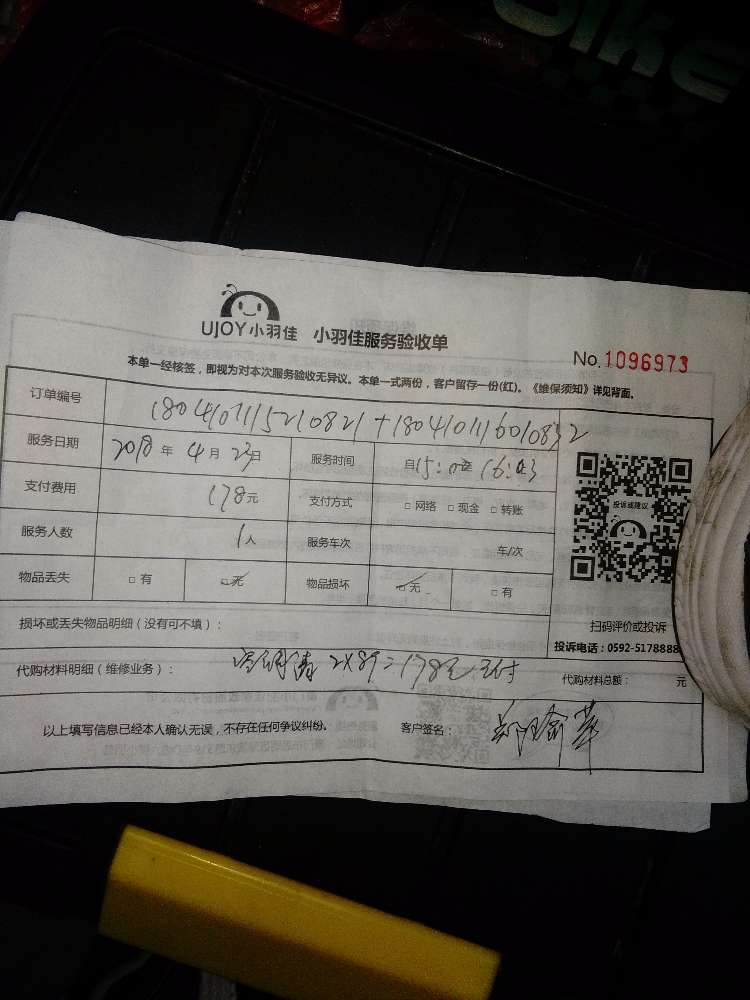 UJOY小羽佳 小羽佳服务验收单
No.1096973
本单一经核签，即视为对本次服务验收无异议。本单一式两份，客户留存一份(红)。《维保须知》详见背面。
订单编号 1804101115210821+1804101116010832
服务日期 2018年4月23日 服务时间 自15:00至16:03
支付费用 178元 支付方式 □网络 □现金 □转账
投诉或建议
服务人数 1人 服务车次 车/次
物品丢失 □有 □无 物品损坏 □无 □有
扫码评价或投诉
损坏或丢失物品明细（没有可不填）：
投诉电话：0592-5178888
代购材料明细（维修业务）： 2X89=178元 代购材料总额： 元
以上填写信息已经本人确认无误，不存在任何争议纠纷。 客户签名：